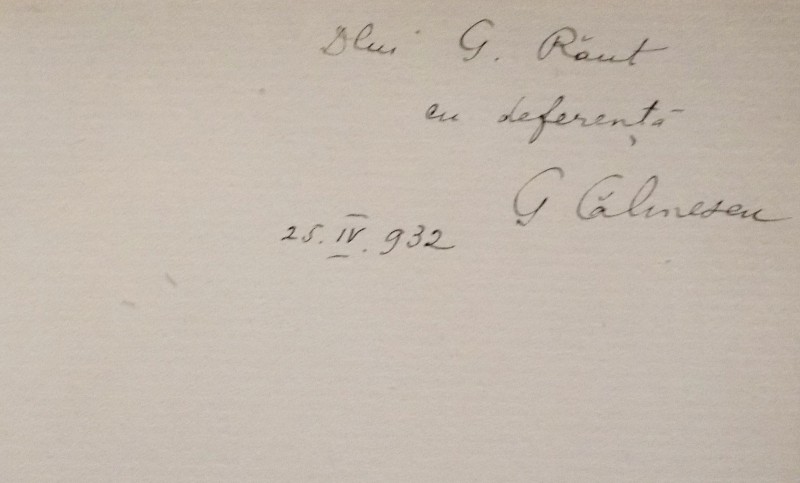 Dlui G. Răut
cu deferență
G Călinescu
25. IV. 932